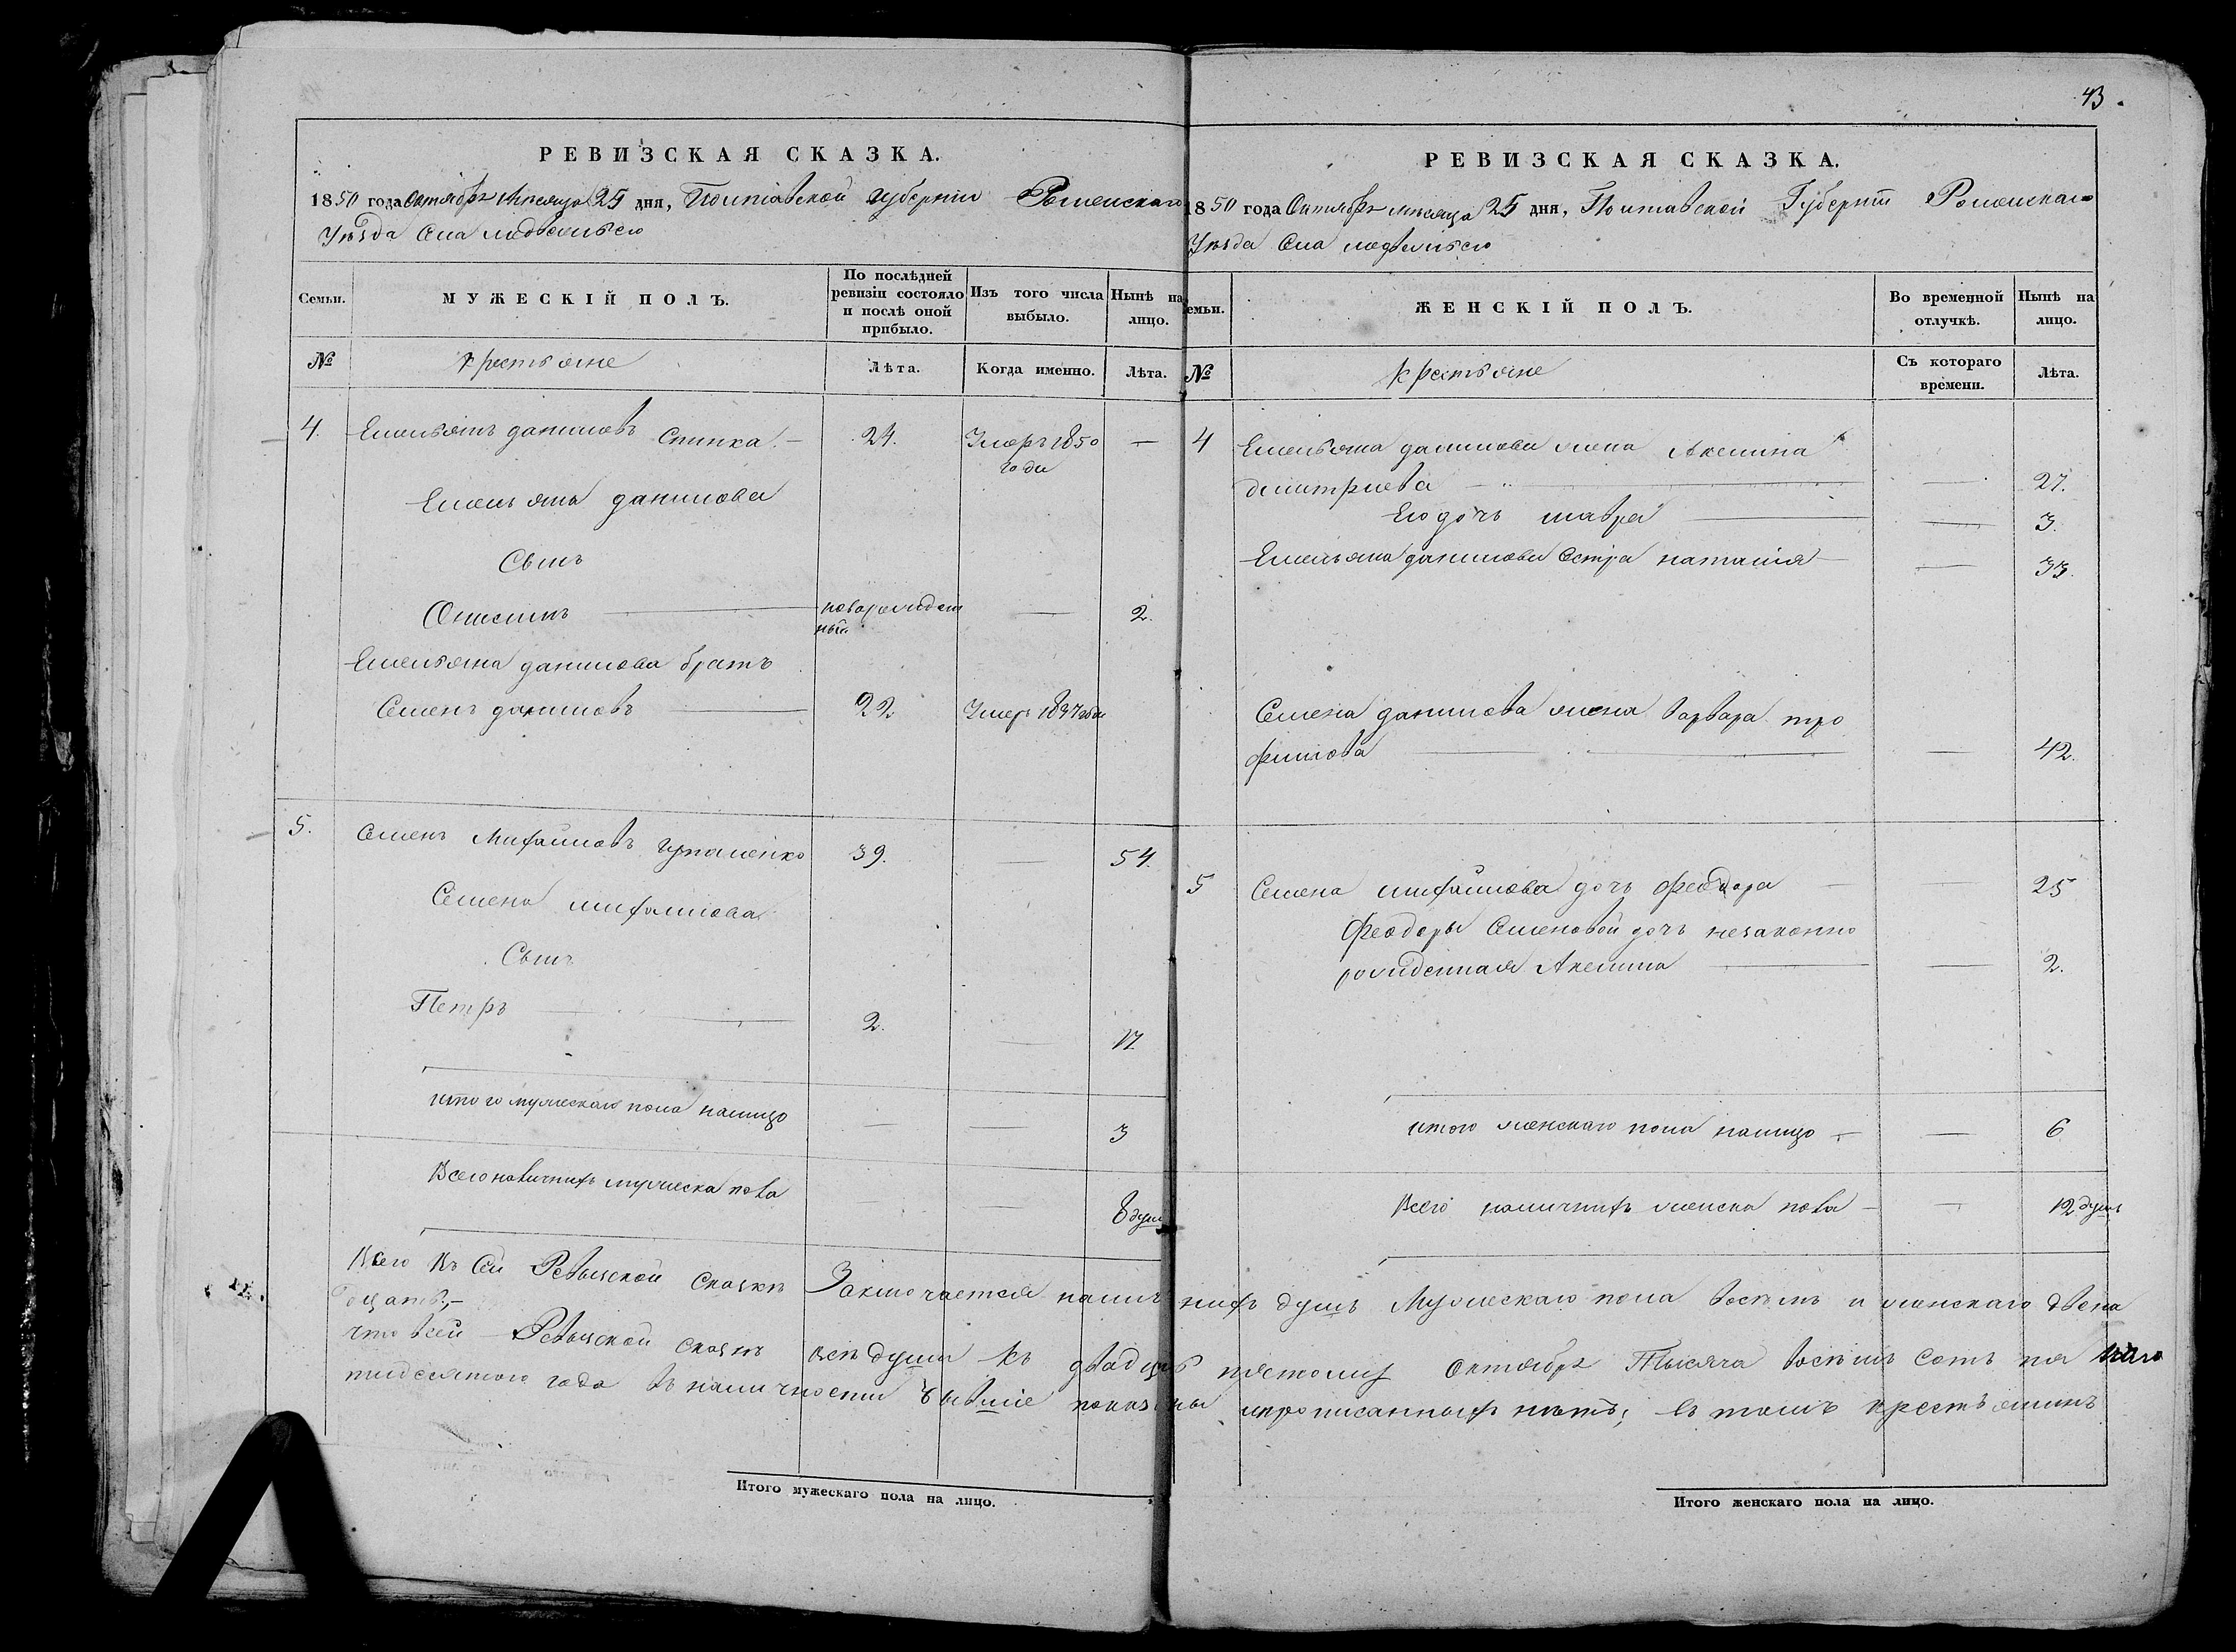 РЕВИЗСКАЯ СКАЗКА.
1850 года Октября Месяца 25 дня, Полтавской губернии Роменскаго
Уезда Села
Семьи.
МУЖЕСКІЙ ПОЛЪ.
По послѣдней ревизіи состояло и послѣ оной прибыло.
Изъ того числа выбыло.
Нынѣ на лицо.
№
крестьяне
Лѣта.
Когда именно.
Лѣта.
4. Емельянъ даниловъ Спинка. — 24. Умеръ 1850 года —
Емельяна данилова
Сынъ
Онисимъ новорожденный — 2.
Емельяна данилова братъ
Семенъ даниловъ 22 Умеръ 1847 года
5. Семенъ Михайловъ 39. — 54.
Семена михайлова
Сынъ
Петръ 2. — 17
итого мужескаго пола налицо — — 3
Всего наличнихъ мужеска пола — — 8 душ
43.
РЕВИЗСКАЯ СКАЗКА.
1850 года Октября месяца 25 дня, Полтавской Губерніи Роменскаго
Уезда Села
емьи.
ЖЕНСКІЙ ПОЛЪ.
Во временной отлучкѣ.
Нынѣ на лицо.
№
крестьяне
Съ котораго времени.
Лѣта.
4 Емельяна данилова жена Аксиніа
димтриева — 27.
Его дочъ мавра — 3.
Емельяна данилова Сестра наталія — 33.
Семена данилова жена варвара тро
фимова — 42.
5 Семена михайлова дочъ феодора — 25
Феодоры Семеновой дочъ незаконно
рожденная Аксинia — 2.
итого женскаго пола налицо — — 6
Всего наличнихъ женска пола — — 12 душъ
Всего Въ Сей Ревизской Сказке Заключается наличнихъ душъ Мужескаго пола восемъ и женскаго двена
дцать,—
что всей Ревизской сказке все души къ двадцать пятому Октября Тысяча восемъ сотъ пя
тидесятого года въ наличности бывшіе показаны ипрописанныхъ нетъ, въ томъ крестьянинъ
Итого мужескаго пола на лицо.
Итого женскаго пола на лицо.